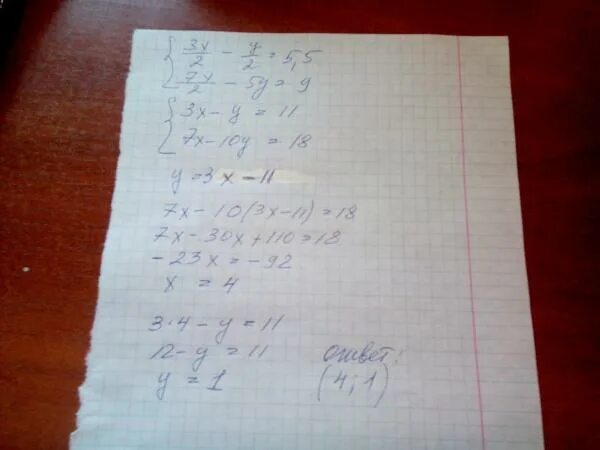 { 3x/2 - y/2 = 5,5
7x/2 - 5y = 9
{ 3x - y = 11
7x - 10y = 18
y = 3x - 11
7x - 10(3x - 11) = 18
7x - 30x + 110 = 18
- 23x = - 92
x = 4
3·4 - y = 11
12 - y = 11
y = 1
ответ:
(4;1)